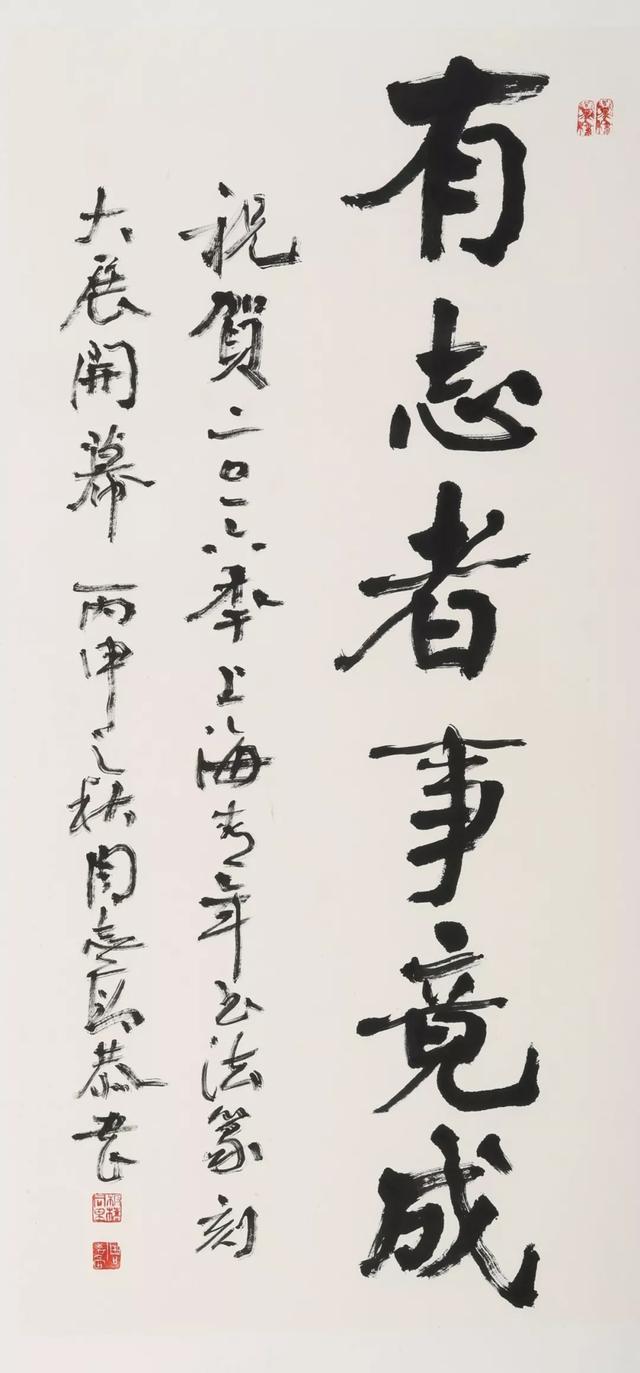 有志者事竟成
祝賀二〇一六秊上海青年书法篆刻
大展開幕 丙申之秋周志高恭